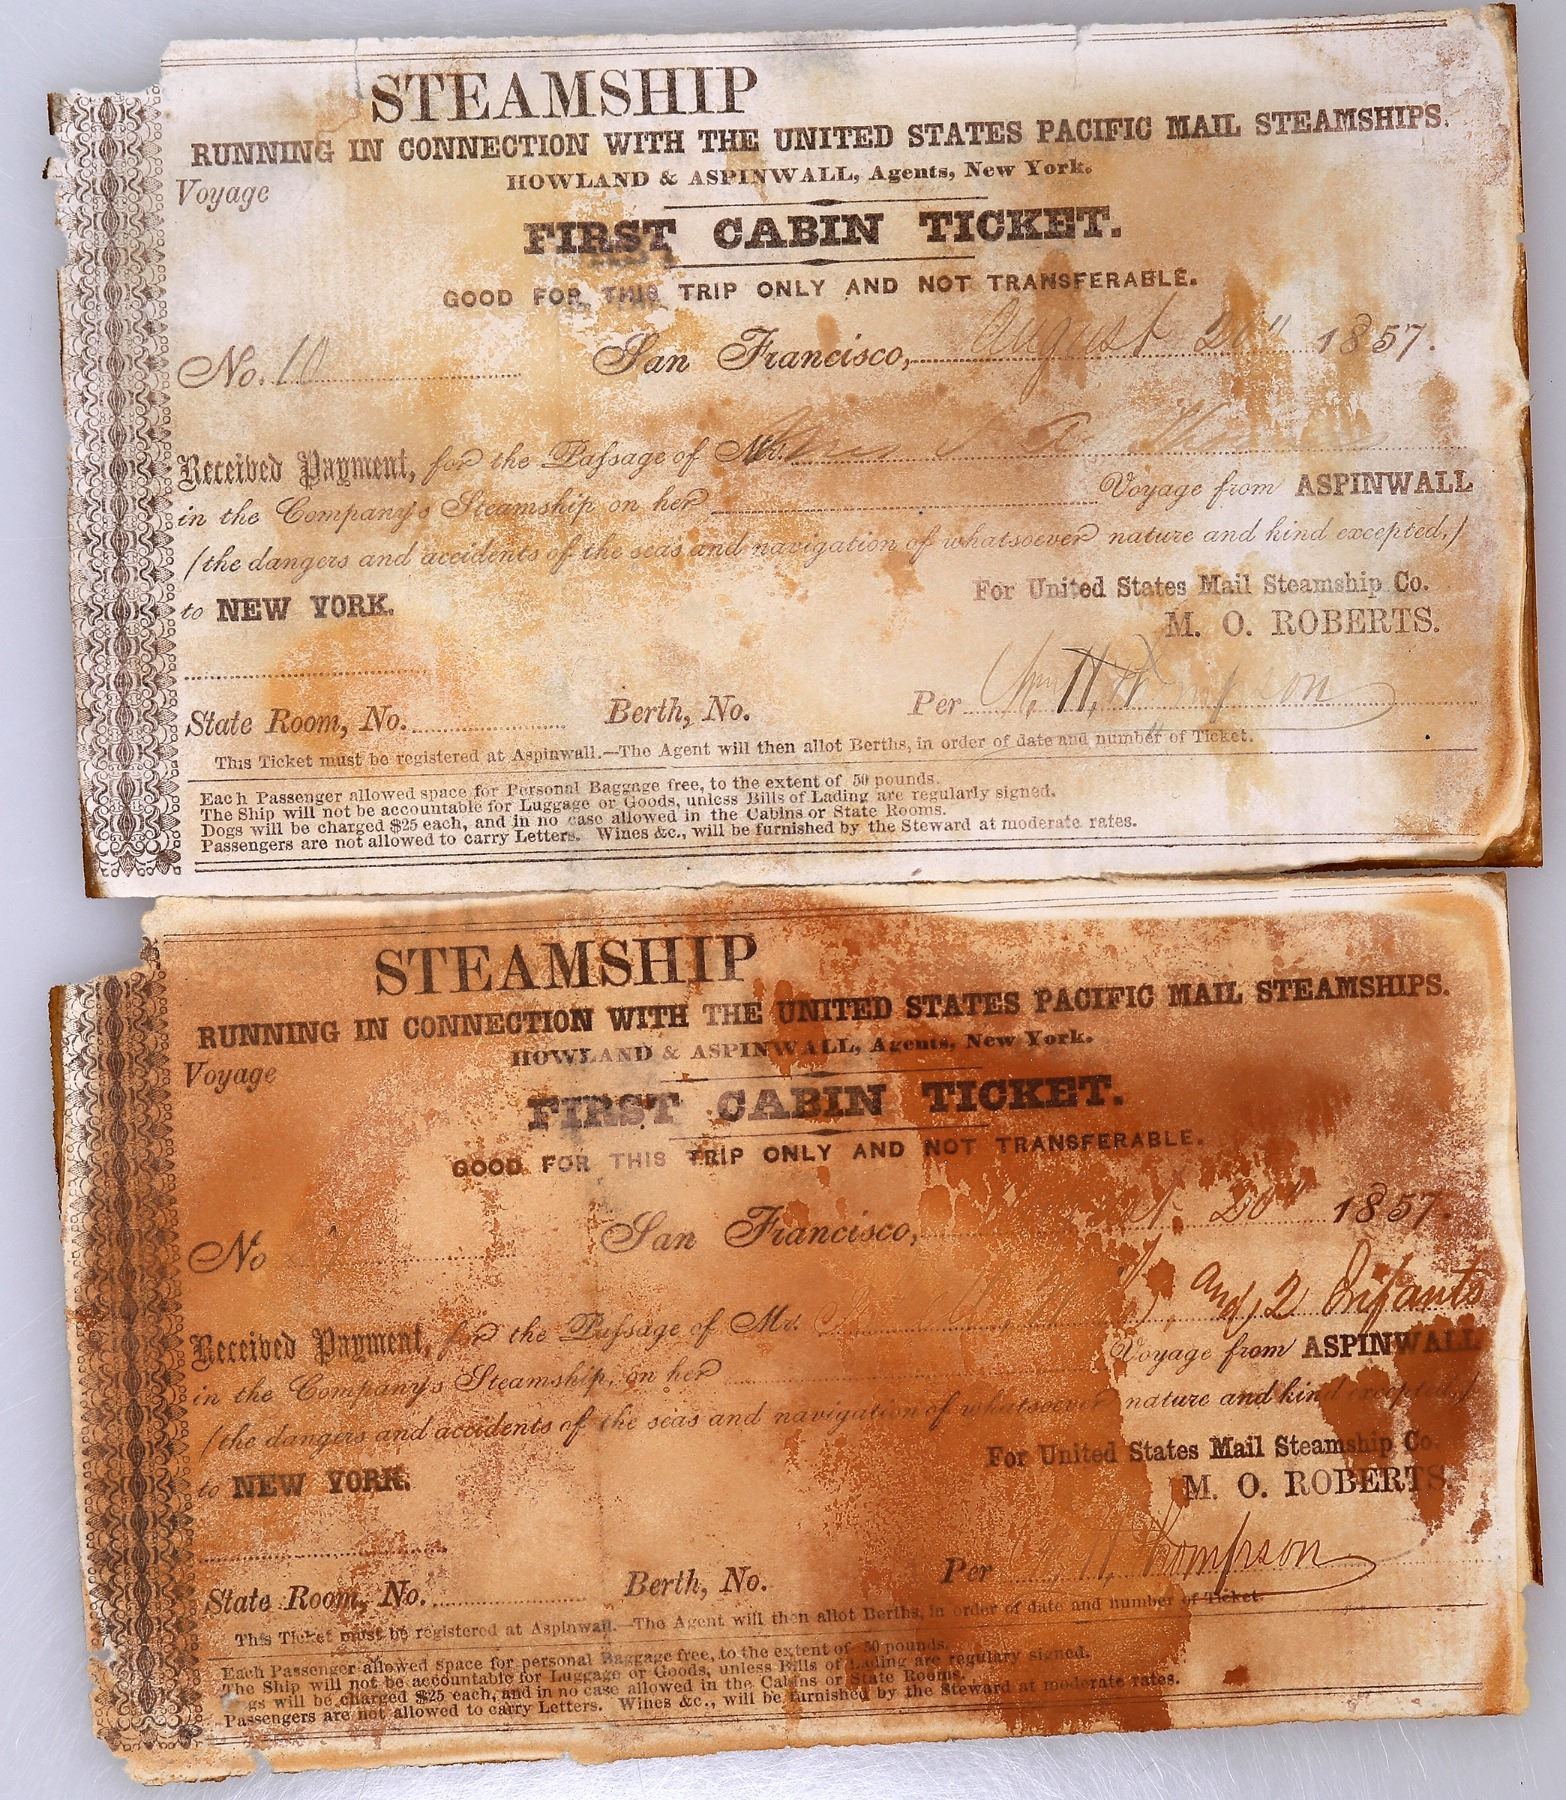 STEAMSHIP
RUNNING IN CONNECTION WITH THE UNITED STATES PACIFIC MAIL STEAMSHIPS.
Voyage
HOWLAND & ASPINWALL, Agents, New York.
FIRST CABIN TICKET.
GOOD FOR THIS TRIP ONLY AND NOT TRANSFERABLE.
No. 10 San Francisco, August 20" 1857.
Received Payment, for the Passage of Mr.
in the Company's Steamship on her Voyage from ASPINWALL
(the dangers and accidents of the seas and navigation of whatsoever nature and kind excepted,)
to NEW YORK.
For United States Mail Steamship Co.
M. O. ROBERTS.
State Room, No. Berth, No. Per H. Thompson
This Ticket must be registered at Aspinwall.—The Agent will then allot Berths, in order of date and number of Ticket.
Each Passenger allowed space for Personal Baggage free, to the extent of 50 pounds.
The Ship will not be accountable for Luggage or Goods, unless Bills of Lading are regularly signed.
Dogs will be charged $25 each, and in no case allowed in the Cabins or State Rooms.
Passengers are not allowed to carry Letters. Wines &c., will be furnished by the Steward at moderate rates.
STEAMSHIP
RUNNING IN CONNECTION WITH THE UNITED STATES PACIFIC MAIL STEAMSHIPS.
Voyage
HOWLAND & ASPINWALL, Agents, New York.
FIRST CABIN TICKET.
GOOD FOR THIS TRIP ONLY AND NOT TRANSFERABLE.
No San Francisco, 20" 1857.
Received Payment, for the Passage of Mr. and 2 Infants
in the Company's Steamship, on her Voyage from ASPINWALL
(the dangers and accidents of the seas and navigation of whatsoever nature and kind excepted,)
to NEW YORK.
For United States Mail Steamship Co.
M. O. ROBERTS.
State Room, No. Berth, No. Per H. Thompson
This Ticket must be registered at Aspinwall.—The Agent will then allot Berths, in order of date and number of Ticket.
Each Passenger allowed space for personal Baggage free, to the extent of 50 pounds.
The Ship will not be accountable for Luggage or Goods, unless Bills of Lading are regulary signed.
gs will be charged $25 each, and in no case allowed in the Cabins or State Rooms.
Passengers are not allowed to carry Letters. Wines &c., will be furnished by the Steward at moderate rates.